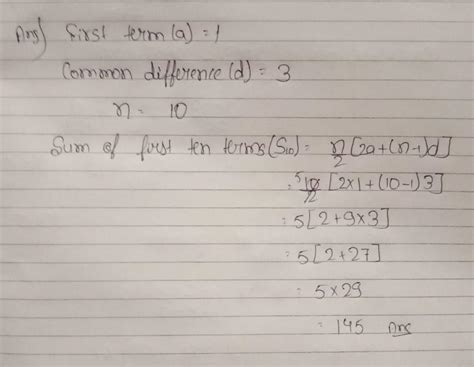 Ans) First term (a) = 1
Common difference (d) = 3
n = 10
Sum of first ten terms (S10) = n/2 [2a+(n-1)d]
= 5 10/2 [2×1+(10-1)3]
= 5[2+9×3]
= 5[2+27]
= 5×29
= 145 Ans